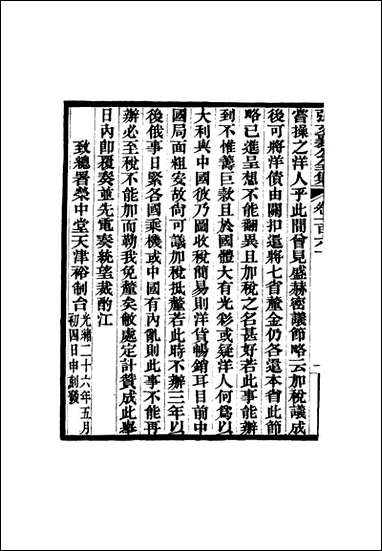 嘗操之洋人乎此間曾見盛赫密議節略云加稅議成
後可將洋債由關扣還將七省釐金仍各還本省此節
略已進呈想不能翻異且加稅之名甚好若此事能辦
到不惟籌巨款且於國體大有光彩或疑洋人何爲以
大利與中國彼乃圖收稅簡易則洋貨暢銷耳目前中
國局面粗安故尙可議加稅抵釐若此時不辦三年以
後俄事日緊各國乘機或中國有內亂則此事不能再
辦必至稅不能加而勒我免釐矣敝處定計贊成此舉
日內卽覆奏並先電奏統望裁酌江
致總署榮中堂天津裕制台光緒二十六年五月
初四日申刻發